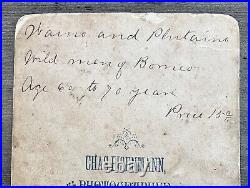 Waino and Plutaino
Wild men of Borneo
Age 60 to 70 years
Price 15c
CHAS. EISENMANN,
PHOTOGRAPHER